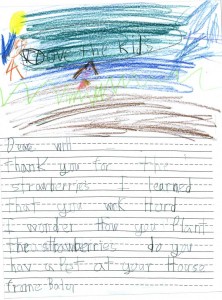 Dear will
thank you for the
strawberries I learned
that you wrk Hard
I wonder How you Plant
the strawberries do you
hav a Pet at your House